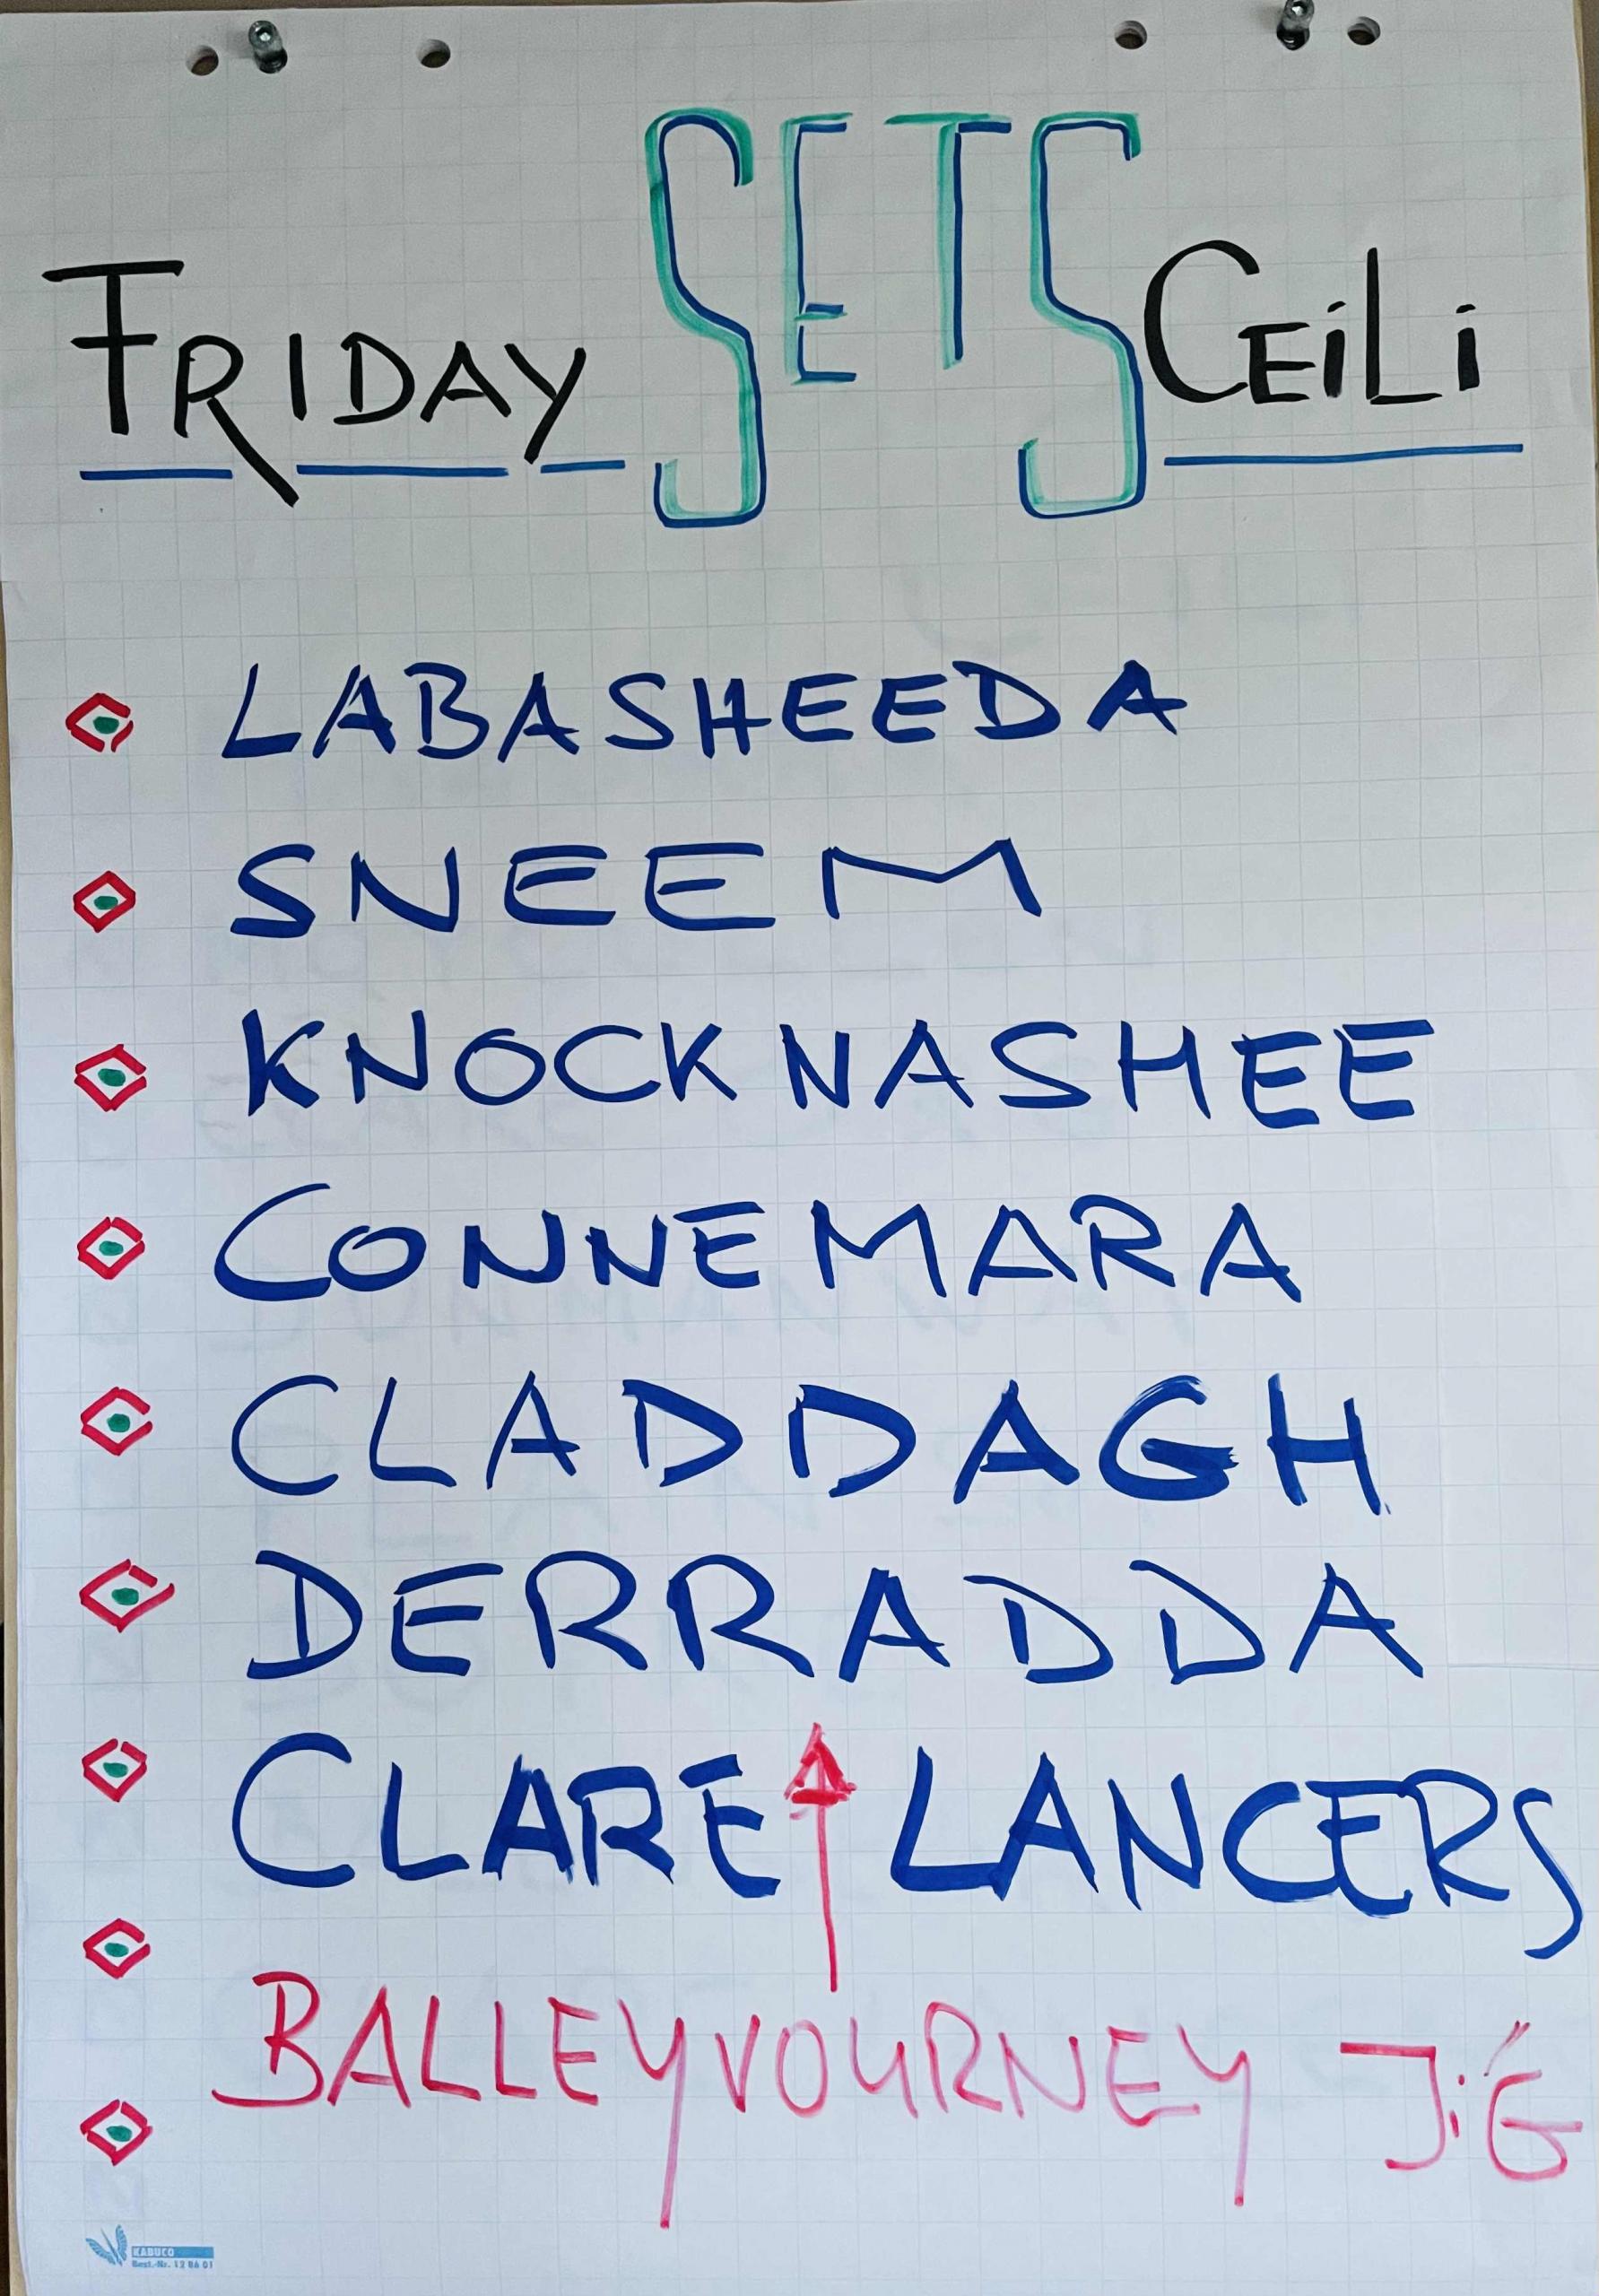 FRIDAY SETS CEiLi
LABASHEEDA
SNEEM
KNOCKNASHEE
CONNEMARA
CLADDAGH
DERRADDA
CLARE LANCERS
BALLEYVOURNEY JiG
KABUCO
Best.-Nr. 12 86 01